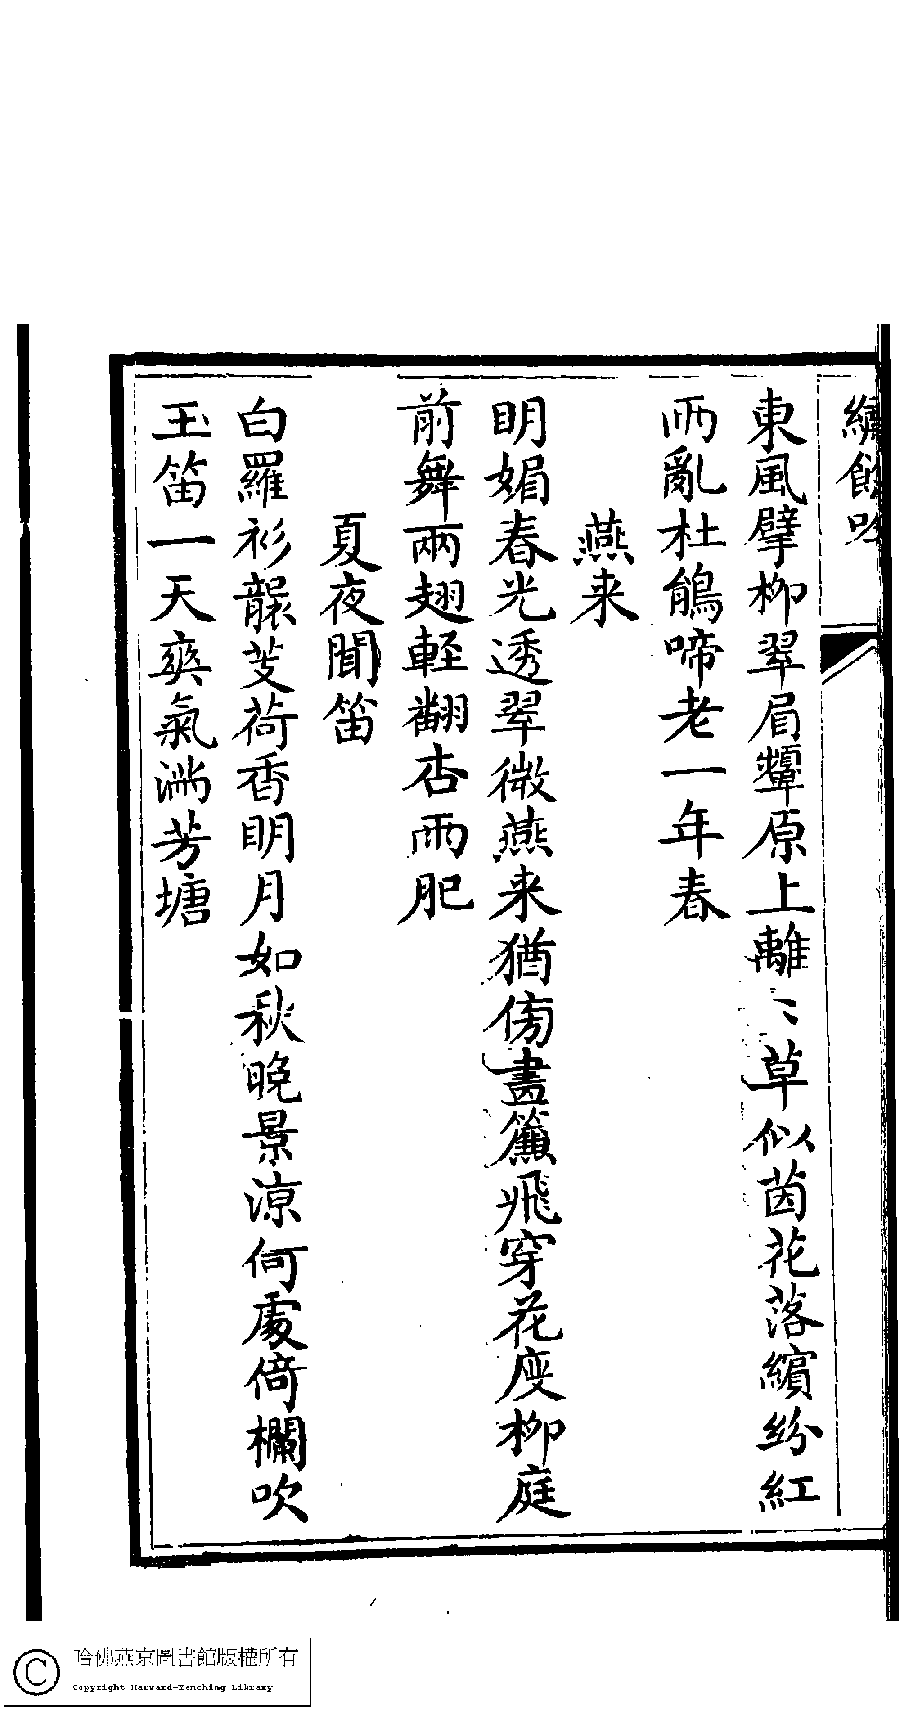 繡餘吟
東風擘柳翠眉顰原上離〻草似茵花落繽紛紅
雨亂杜鵑啼老一年春
燕来
明媚春光透翠微燕来猶傍畫簾飛穿花度柳庭
前舞兩翅輕翻杏雨肥
夏夜聞笛
白羅衫襲芰荷香明月如秋晚景涼何處倚欄吹
玉笛一天爽氣滿芳塘
哈佛燕京圖書館版權所有
Copyright Harvard-Yenching Library